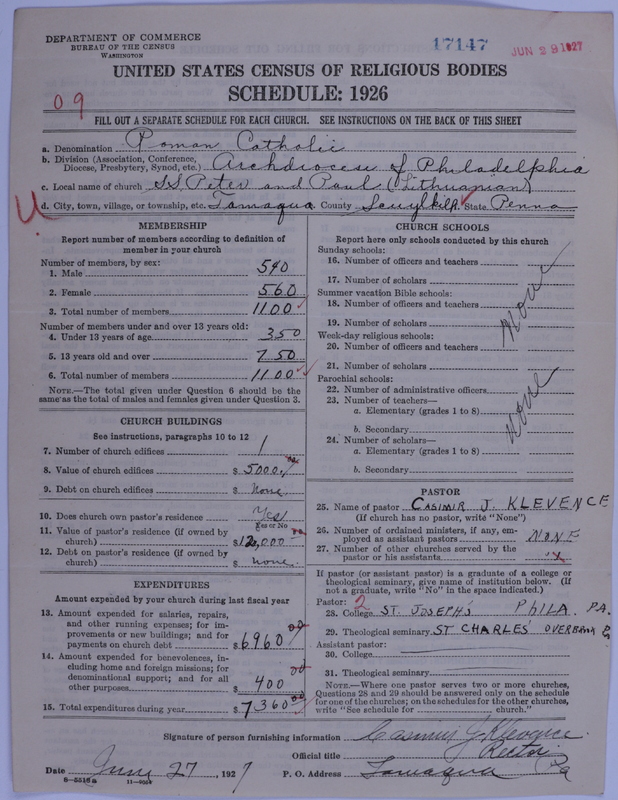 DEPARTMENT OF COMMERCE
BUREAU OF THE CENSUS
WASHINGTON
17147
JUN 29 1927
UNITED STATES CENSUS OF RELIGIOUS BODIES
SCHEDULE: 1926
09
FILL OUT A SEPARATE SCHEDULE FOR EACH CHURCH. SEE INSTRUCTIONS ON THE BACK OF THIS SHEET
a. Denomination Roman Catholic
b. Division (Association, Conference, Diocese, Presbytery, Synod, etc.) Archdiocese of Philadelphia
c. Local name of church S.S. Peter and Paul (Lithuanian)
d. City, town, village, or township, etc. Tamaqua County Scuylkill State Penna
MEMBERSHIP
Report number of members according to definition of
member in your church
Number of members, by sex:
1. Male 540
2. Female 560
3. Total number of members 1100
Number of members under and over 13 years old:
4. Under 13 years of age 350
5. 13 years old and over 750
6. Total number of members 1100
NOTE.—The total given under Question 6 should be
the same as the total of males and females given under Question 3.
CHURCH BUILDINGS
See instructions, paragraphs 10 to 12
7. Number of church edifices 1
8. Value of church edifices $ 5000.00
9. Debt on church edifices $ none
10. Does church own pastor's residence Yes
Yes or No
11. Value of pastor's residence (if owned by
church) $ 12,000 00
12. Debt on pastor's residence (if owned by
church) $ none.
EXPENDITURES
Amount expended by your church during last fiscal year
13. Amount expended for salaries, repairs,
and other running expenses; for im-
provements or new buildings; and for
payments on church debt $ 6960 00
14. Amount expended for benevolences, in-
cluding home and foreign missions; for
denominational support; and for all
other purposes $ 400 00
15. Total expenditures during year $ 7360 00
CHURCH SCHOOLS
Report here only schools conducted by this church
Sunday schools:
16. Number of officers and teachers
17. Number of scholars
Summer vacation Bible schools:
18. Number of officers and teachers
None
19. Number of scholars
Week-day religious schools:
20. Number of officers and teachers
21. Number of scholars
Parochial schools:
22. Number of administrative officers
23. Number of teachers—
a. Elementary (grades 1 to 8)
None
b. Secondary
24. Number of scholars—
a. Elementary (grades 1 to 8)
b. Secondary
PASTOR
25. Name of pastor CASIMIR J. KLEVENCE
(If church has no pastor, write "None")
26. Number of ordained ministers, if any, em-
ployed as assistant pastors NONE
27. Number of other churches served by the
pastor or his assistants
If pastor (or assistant pastor) is a graduate of a college or
theological seminary, give name of institution below. (If
not a graduate, write "No" in the space indicated.)
Pastor: 2
28. College ST. JOSEPH'S PHILA. PA.
29. Theological seminary ST CHARLES' OVERBROOK PA
Assistant pastor:
30. College
31. Theological seminary
NOTE.—Where one pastor serves two or more churches,
Questions 28 and 29 should be answered only on the schedule
for one of the churches; on the schedules for the other churches,
write "See schedule for church."
Signature of person furnishing information Casimir J. Klevence
Official title Rector
Date June 27, 1927 P. O. Address Tamaqua Pa
8-5516a 11-9554